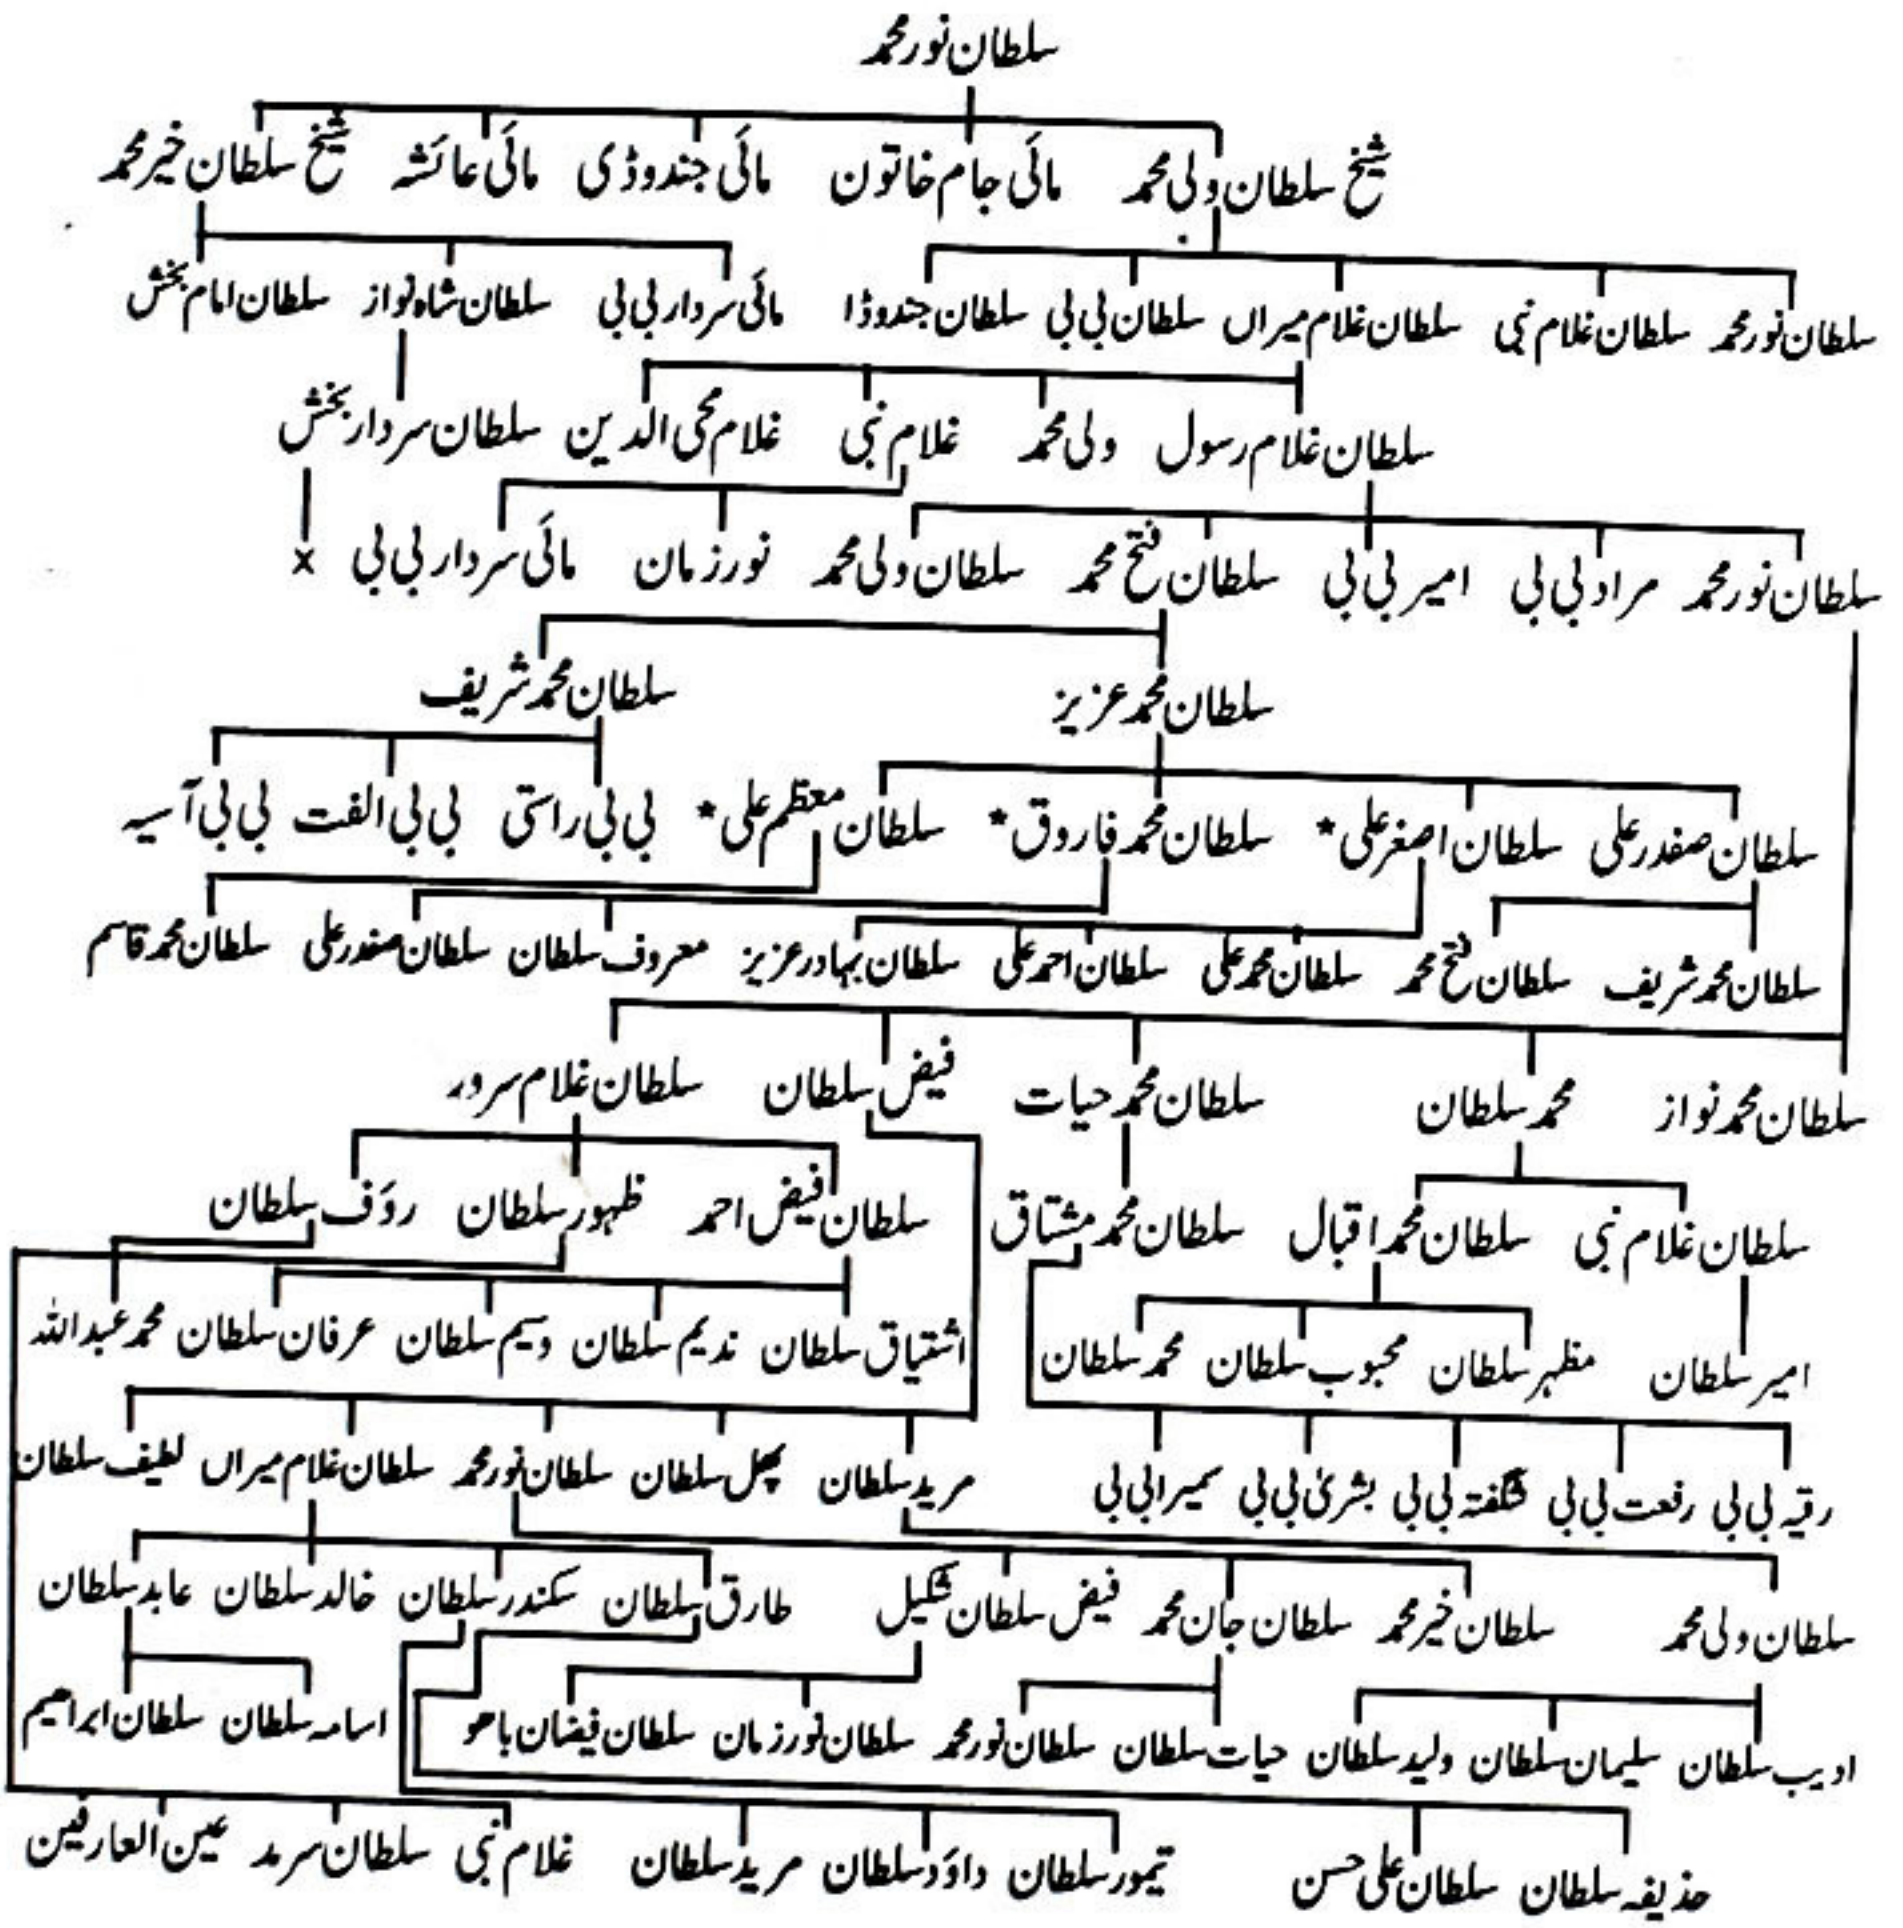 سلطان نور محمد
شیخ سلطان ولی محمد مائی جام خاتون مائی جندوڈی مائی عائشہ شیخ سلطان خیر محمد
سلطان نور محمد سلطان غلام نبی سلطان غلام میراں سلطان بی بی سلطان جندوڈا مائی سردار بی بی سلطان شاہ نواز سلطان امام بخش
سلطان غلام رسول ولی محمد غلام نبی غلام محی الدین سلطان سردار بخش
سلطان نور محمد مراد بی بی امیر بی بی سلطان فتح محمد سلطان ولی محمد نور زمان مائی سردار بی بی ×
سلطان محمد عزیز سلطان محمد شریف
سلطان صفدر علی سلطان اصغر علی * سلطان محمد فاروق * سلطان معظم علی * بی بی راستی بی بی الفت بی بی آسیہ
سلطان محمد شریف سلطان فتح محمد سلطان محمد علی سلطان احمد علی سلطان بہادر عزیز معروف سلطان سلطان صفدر علی سلطان محمد قاسم
سلطان محمد نواز محمد سلطان سلطان محمد حیات فیض سلطان سلطان غلام سرور
سلطان غلام نبی سلطان محمد اقبال سلطان محمد مشتاق سلطان فیض احمد ظہور سلطان رؤف سلطان
امیر سلطان مظہر سلطان محبوب سلطان محمد سلطان اشتیاق سلطان ندیم سلطان وسیم سلطان عرفان سلطان محمد عبداللہ
رقیہ بی بی رفعت بی بی شگفتہ بی بی بشریٰ بی بی سمیرا بی بی مرید سلطان پھل سلطان سلطان نور محمد سلطان غلام میراں لطیف سلطان
سلطان ولی محمد سلطان خیر محمد سلطان جان محمد فیض سلطان شکیل طارق سلطان سکندر سلطان خالد سلطان عابد سلطان
ادیب سلطان سلیمان سلطان ولید سلطان حیات سلطان سلطان نور محمد سلطان نور زمان سلطان فیضان باھو اسامہ سلطان سلطان ابراھیم
حذیفہ سلطان سلطان علی حسن تیمور سلطان داؤد سلطان مرید سلطان غلام نبی سلطان سرمد عین العارفین